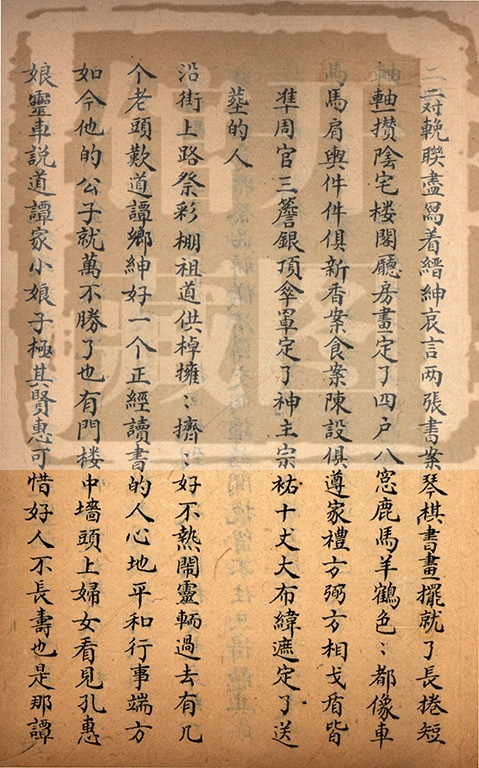 二三對輓聯盡寫着縉紳哀言两張書案琴棋書畫擺就了長捲短
軸一攢陰宅楼閣廳房畫定了四户八窓鹿馬羊鶴色〻都像車
馬肩輿件件俱新香案食案陳設俱遵家禮方弼方相戈盾皆
凖周官三簷銀頂傘罩定了神主宗祐十丈大布緯遮定了送
塟的人
沿街上路祭彩棚祖道供棹擁〻擠〻好不熱鬧靈輀過去有几
个老頭歎道譚鄉紳好一个正經讀書的人心地平和行事端方
如今他的公子就萬不勝了也有門楼中墻頭上婦女看見孔惠
娘靈車説道譚家小娘子極其賢惠可惜好人不長壽也是那譚